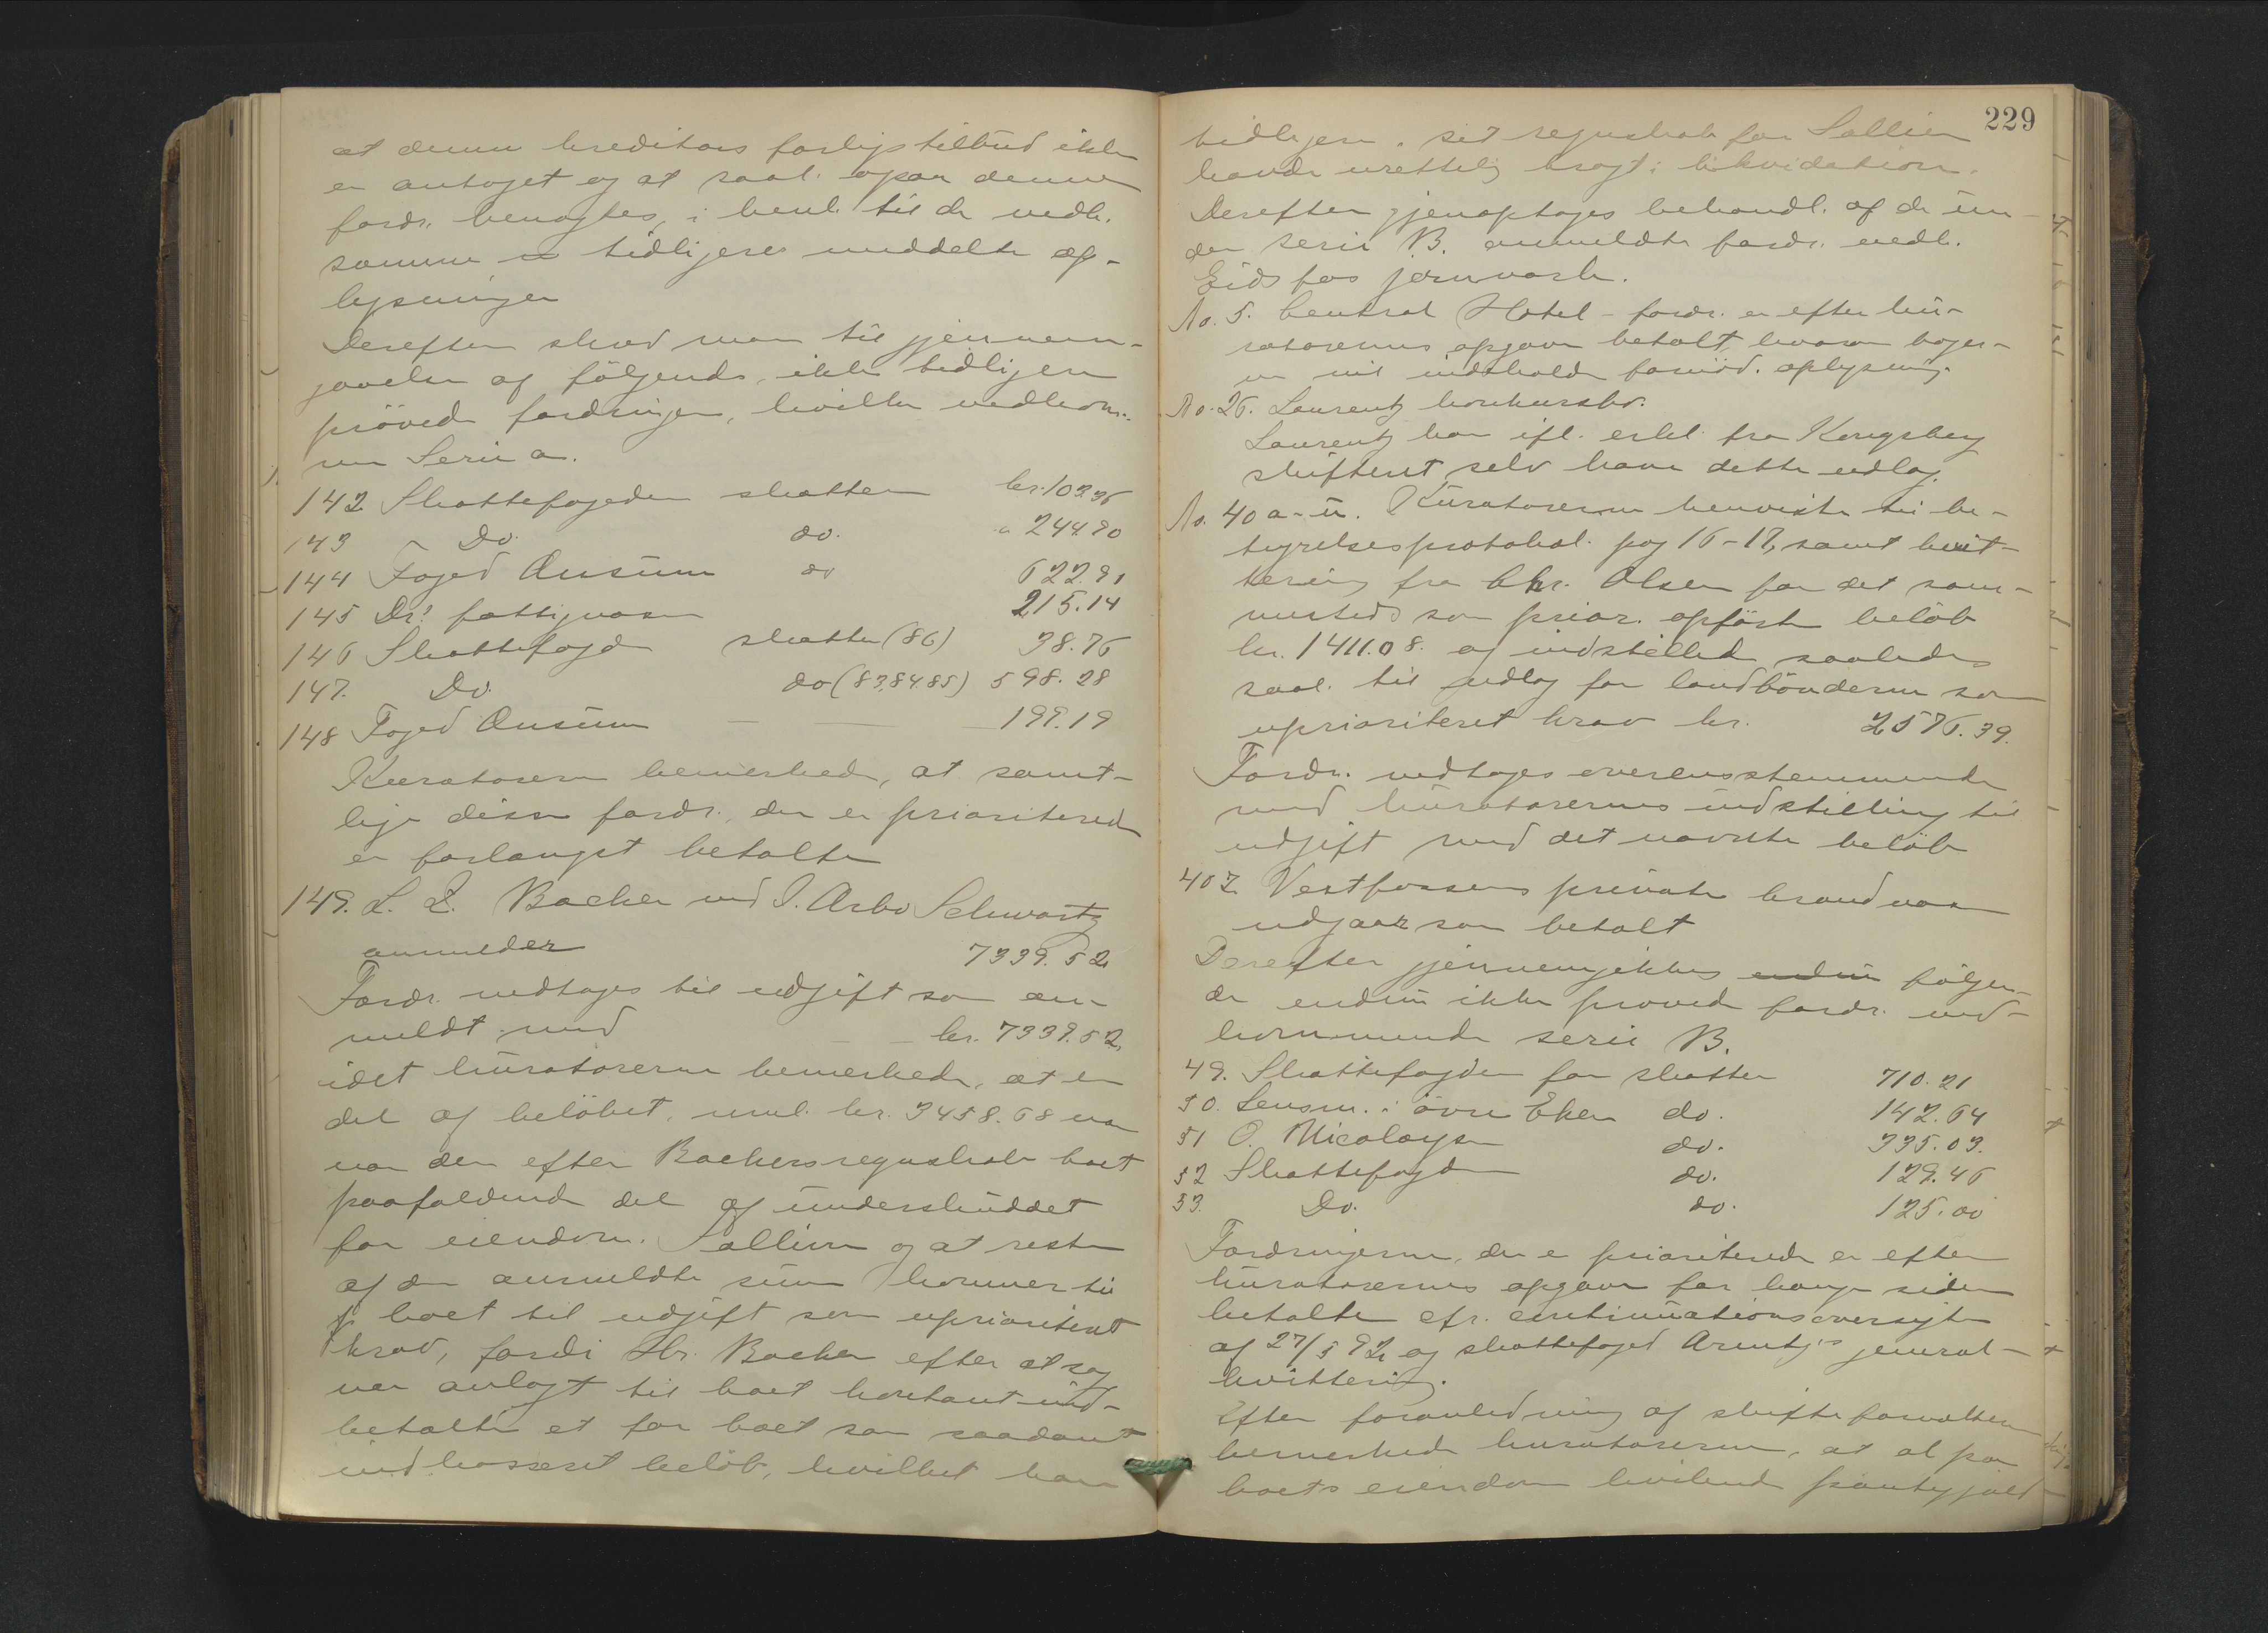 at denne kreditors forligstilbud ikke
er antaget og at saal. ogsaa denne
fordr. benegtes, i henh. til de vedk.
samme tidligere meddelte op-
lysninger
Derefter skred man til gjennem-
gaaelse af følgende, ikke tidligere
prövede fordringer, hvilke vedkom-
mer Serie a.
142 Skattefogeden skatter kr. 103.36
143 Do. do. " 244.90
144 Foged Ansum do 622.91
145 Dr. fattigvæsen 215.14
146 Skattefogden skatter (86) 38.76
147. Do. do (83.84.85) 598.28
148 Foged Ansum — — 199.19
Kuratorerne bemerkede, at samt-
lige disse fordr., der er prioriterede
er forlængst betalte
149. L. L. Backer ved J. Arbo Schwartz
anmelder 7339.52
Fordr. vedtages til udgift som an-
meldt med — — kr. 7339.52,
idet kuratorerne bemerkede, at en
del af belöbet, neml. kr. 3458.68
var den efter Backers regnskab boet
paafaldende del af underskuddet
for eiendom. Sollien og at resten
af den anmeldte sum kommer til
boet til udgift som uprioriteret
krav, fordi Hr. Backer efter at sag
var anlagt til boet kontant ind-
betalte et for boet som saadant
indkasseret belöb, hvilket han
229
tidligere i sit regnskab for Sollien
havde urettelig bragt i likvidation.
Derefter gjenoptages behandl. af de un-
der serie B. anmeldte fordr. vedk.
Eidsfos jernverk.
No. 5. Central Hotel - fordr. er efter ku-
ratorernes opgave betalt, hvorom böger-
ne vil indeholde fornöd. oplysning.
No. 26. Laurentz konkursbo.
Laurentz har ifl. erkl. fra Kongsberg
skifteret selv have dette udlæg.
No. 40 a-ü. Kuratorerne henviste til be-
styrelsesprotokol. pag 16-17, samt kvit-
tering fra Chr. Olsen for det sam-
mesteds som prior. opförte belöb
kr. 1411.08. og indstillede saaledes
saal. til udlæg for landbönderne som
uprioriteret krav kr. 2576.39.
Fordr. vedtages overensstemmende
med kuratorernes indstilling til
udgift med det nævnte belöb
40 z Vestfossens private brandvæsen
udgaar som betalt
Derefter gjennemgikkes endnu følgen-
de endnu ikke prövede fordr. ved-
kommende serie B.
49. Skattefogden for skatter 710.21
50. Lensm. i övre Eker do. 142.64
51 O. Nicolaysen do. 335.03.
52 Skattefogden do. 129.46
53. Do. do. 125.00
Fordringerne, der er prioriterede er efter
kuratorernes opgave for længe siden
betalte cfr. continuationsoversigten
af 27/5 92 og skattefoged Arentz's general-
kvittering.
Efter foranledning af skifteforvalteren
bemerkede kuratorerne, at al paa
boets eiendom hvilende pantegjæld